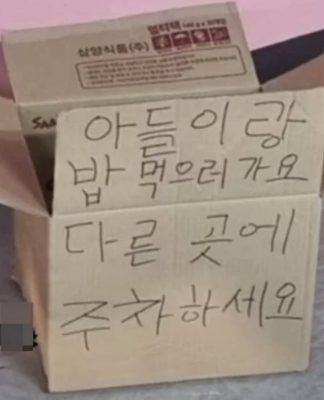 멀티팩
삼양식품(주)
SAM
아들이랑
밥 먹으러 가요
다른 곳에
주차하세요